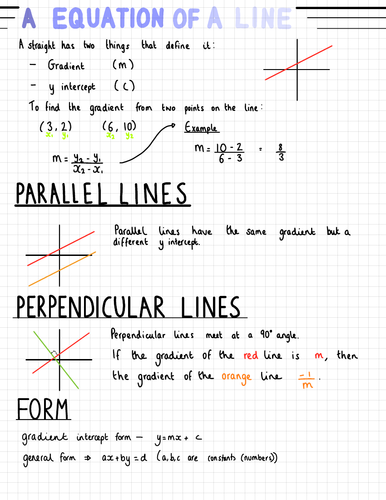 A EQUATION OF A LINE
A straight has two things that define it:
- Gradient (m)
- y intercept (c)
To find the gradient from two points on the line:
(3,2) (6,10)
x₁ y₁ x₂ y₂
m = y₂ - y₁ / x₂ - x₁
Example
m = 10 - 2 / 6 - 3 = 8 / 3
PARALLEL LINES
Parallel lines have the same gradient but a
different y intercept.
PERPENDICULAR LINES
Perpendicular lines meet at a 90° angle.
If the gradient of the red line is m, then
the gradient of the orange line -1/m.
FORM
gradient intercept form - y=mx + c
general form ⇒ ax+by=d (a,b,c are constants (numbers))